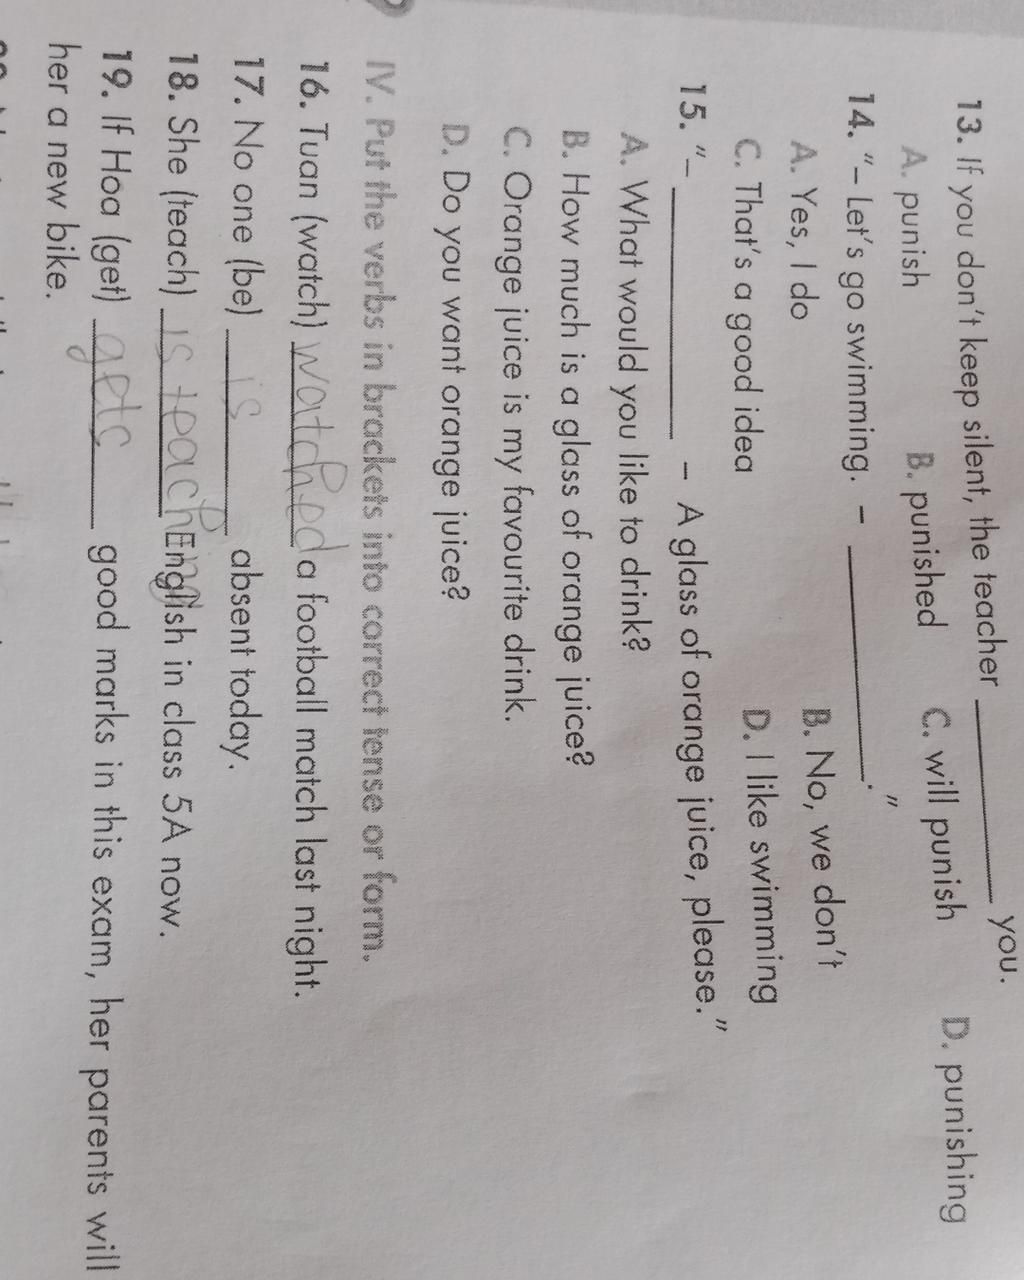 13. If you don't keep silent, the teacher __________ you.
A. punish B. punished C. will punish D. punishing
14. "– Let's go swimming. – __________."
A. Yes, I do B. No, we don't
C. That's a good idea D. I like swimming
15. "– __________ – A glass of orange juice, please."
A. What would you like to drink?
B. How much is a glass of orange juice?
C. Orange juice is my favourite drink.
D. Do you want orange juice?
IV. Put the verbs in brackets into correct tense or form.
16. Tuan (watch) watched a football match last night.
17. No one (be) is absent today.
18. She (teach) is teaching English in class 5A now.
19. If Hoa (get) gets good marks in this exam, her parents will
her a new bike.